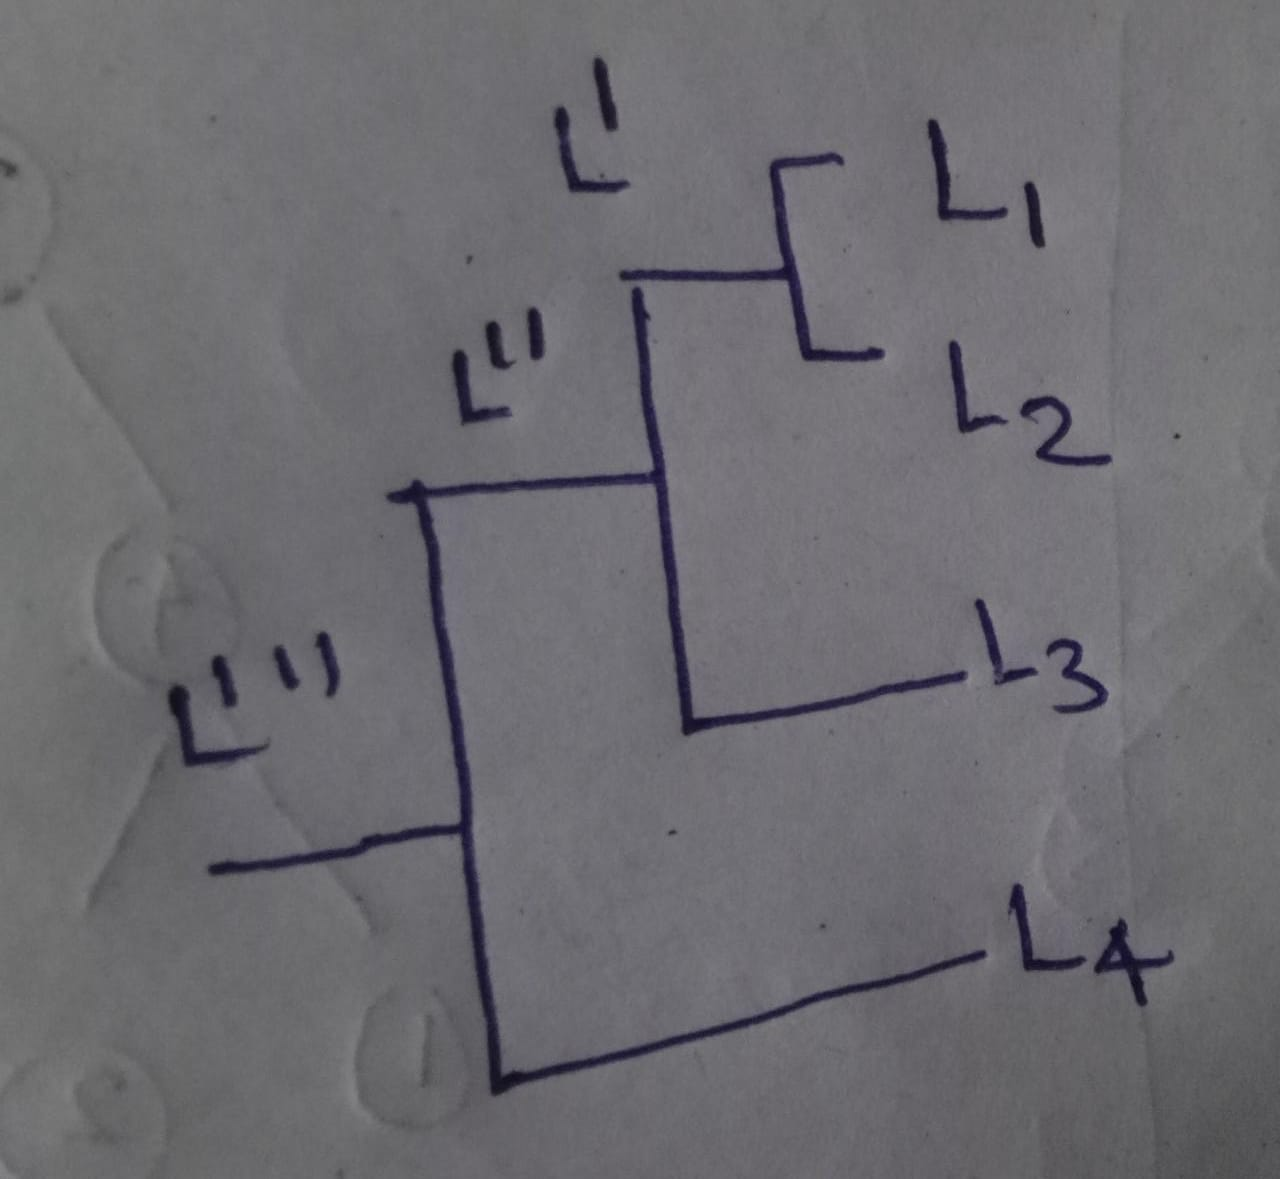 L'
L1
L''
L2
L'''
L3
L4